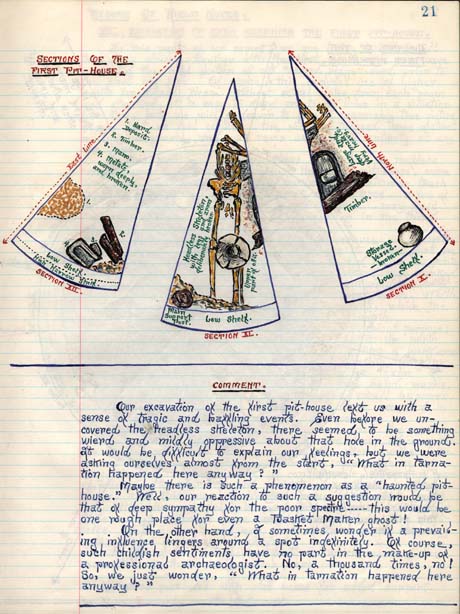 21
SECTIONS OF THE
FIRST PIT-HOUSE.
East Line
1. Hard
Deposit.
2. Timber.
3. Mano.
4. Metate,
worn deeply,
and broken.
1.
2.
3.
4.
Low Shelf.
SECTION XII.
Headless Skeleton,
with legs and arms
deliberately broken
Upper
part of olla.
Main
Support
Post.
Low Shelf.
SECTION XI.
North Line
Timber.
Storage
Vessel
broken
Low Shelf.
SECTION X.
COMMENT.
Our excavation of the first pit-house left us with a
sense of tragic and baffling events. Even before we un-
covered the headless skeleton, there seemed, to be something
wierd and mildly oppressive about that hole in the ground.
It would be difficult to explain our feelings, but we were
asking ourselves, almost from the start, "What in tarna-
tion happened here anyway?"
Maybe there is such a phenomenon as a "haunted pit-
house." Well, our reaction to such a suggestion would be
that of deep sympathy for the poor spectre---- this would be
one rough place for even a Basket Maker ghost!
On the other hand, I sometimes wonder if a prevail-
ing influence lingers around a spot indefinitely. Of course,
such childish sentiments, have no part in the make-up of
a professional archaeologist. No, a thousand times, no!
So, we just wonder, "What in tarnation happened here
anyway?"